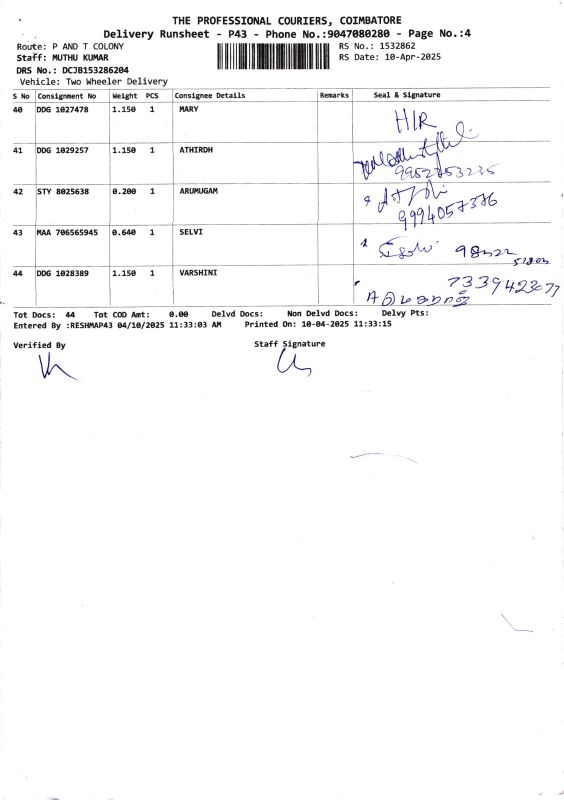 THE PROFESSIONAL COURIERS, COIMBATORE
Delivery Runsheet - P43 - Phone No.:9047080280 - Page No.:4
Route: P AND T COLONY
RS No.: 1532862
Staff: MUTHU KUMAR
RS Date: 10-Apr-2025
DRS No.: DCJB153286204
Vehicle: Two Wheeler Delivery
S No Consignment No Weight PCS Consignee Details Remarks Seal & Signature
40 DDG 1027478 1.150 1 MARY H/R
41 DDG 1029257 1.150 1 ATHIRDH
42 STY 8025638 0.200 1 ARUMUGAM
43 MAA 706565945 0.640 1 SELVI
44 DDG 1028389 1.150 1 VARSHINI
Tot Docs: 44 Tot COD Amt: 0.00 Delvd Docs: Non Delvd Docs: Delvy Pts:
Entered By :RESHMAP43 04/10/2025 11:33:03 AM Printed On: 10-04-2025 11:33:15
Verified By Staff Signature